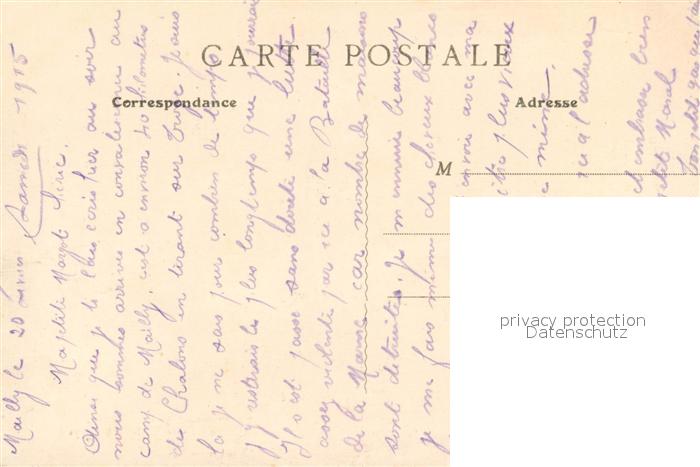 CARTE POSTALE
Correspondance
Adresse
M
Mailly le 20 Juin Samedi 1915
Ma petite Margot chérie,
Ainsi que je te l'ais écris hier au soir
nous sommes arrivés en convalescence au
camp de Mailly, c'est a environ 40 kilomètres
de Chalons en tirant sur Troyes. Je suis
la je ne sais pour combien de temps
j'y resterais le plus longtemps que je pourrai
Il s'est passé sans doute une lutte
assez violente par ici a la Bataille
de la Marne car nombre de maisons
sont détruites. Je m'ennuie beaucoup
je me fais même des cheveux blancs
avec ma
plus vieux
même.
l'adresse
embrasse bien
petit
privacy protection
Datenschutz